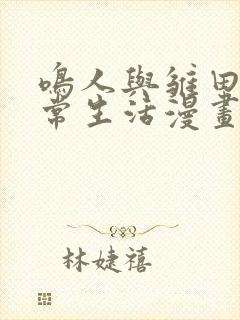 鳴人與雛田
常生活漫畫
林婕禧